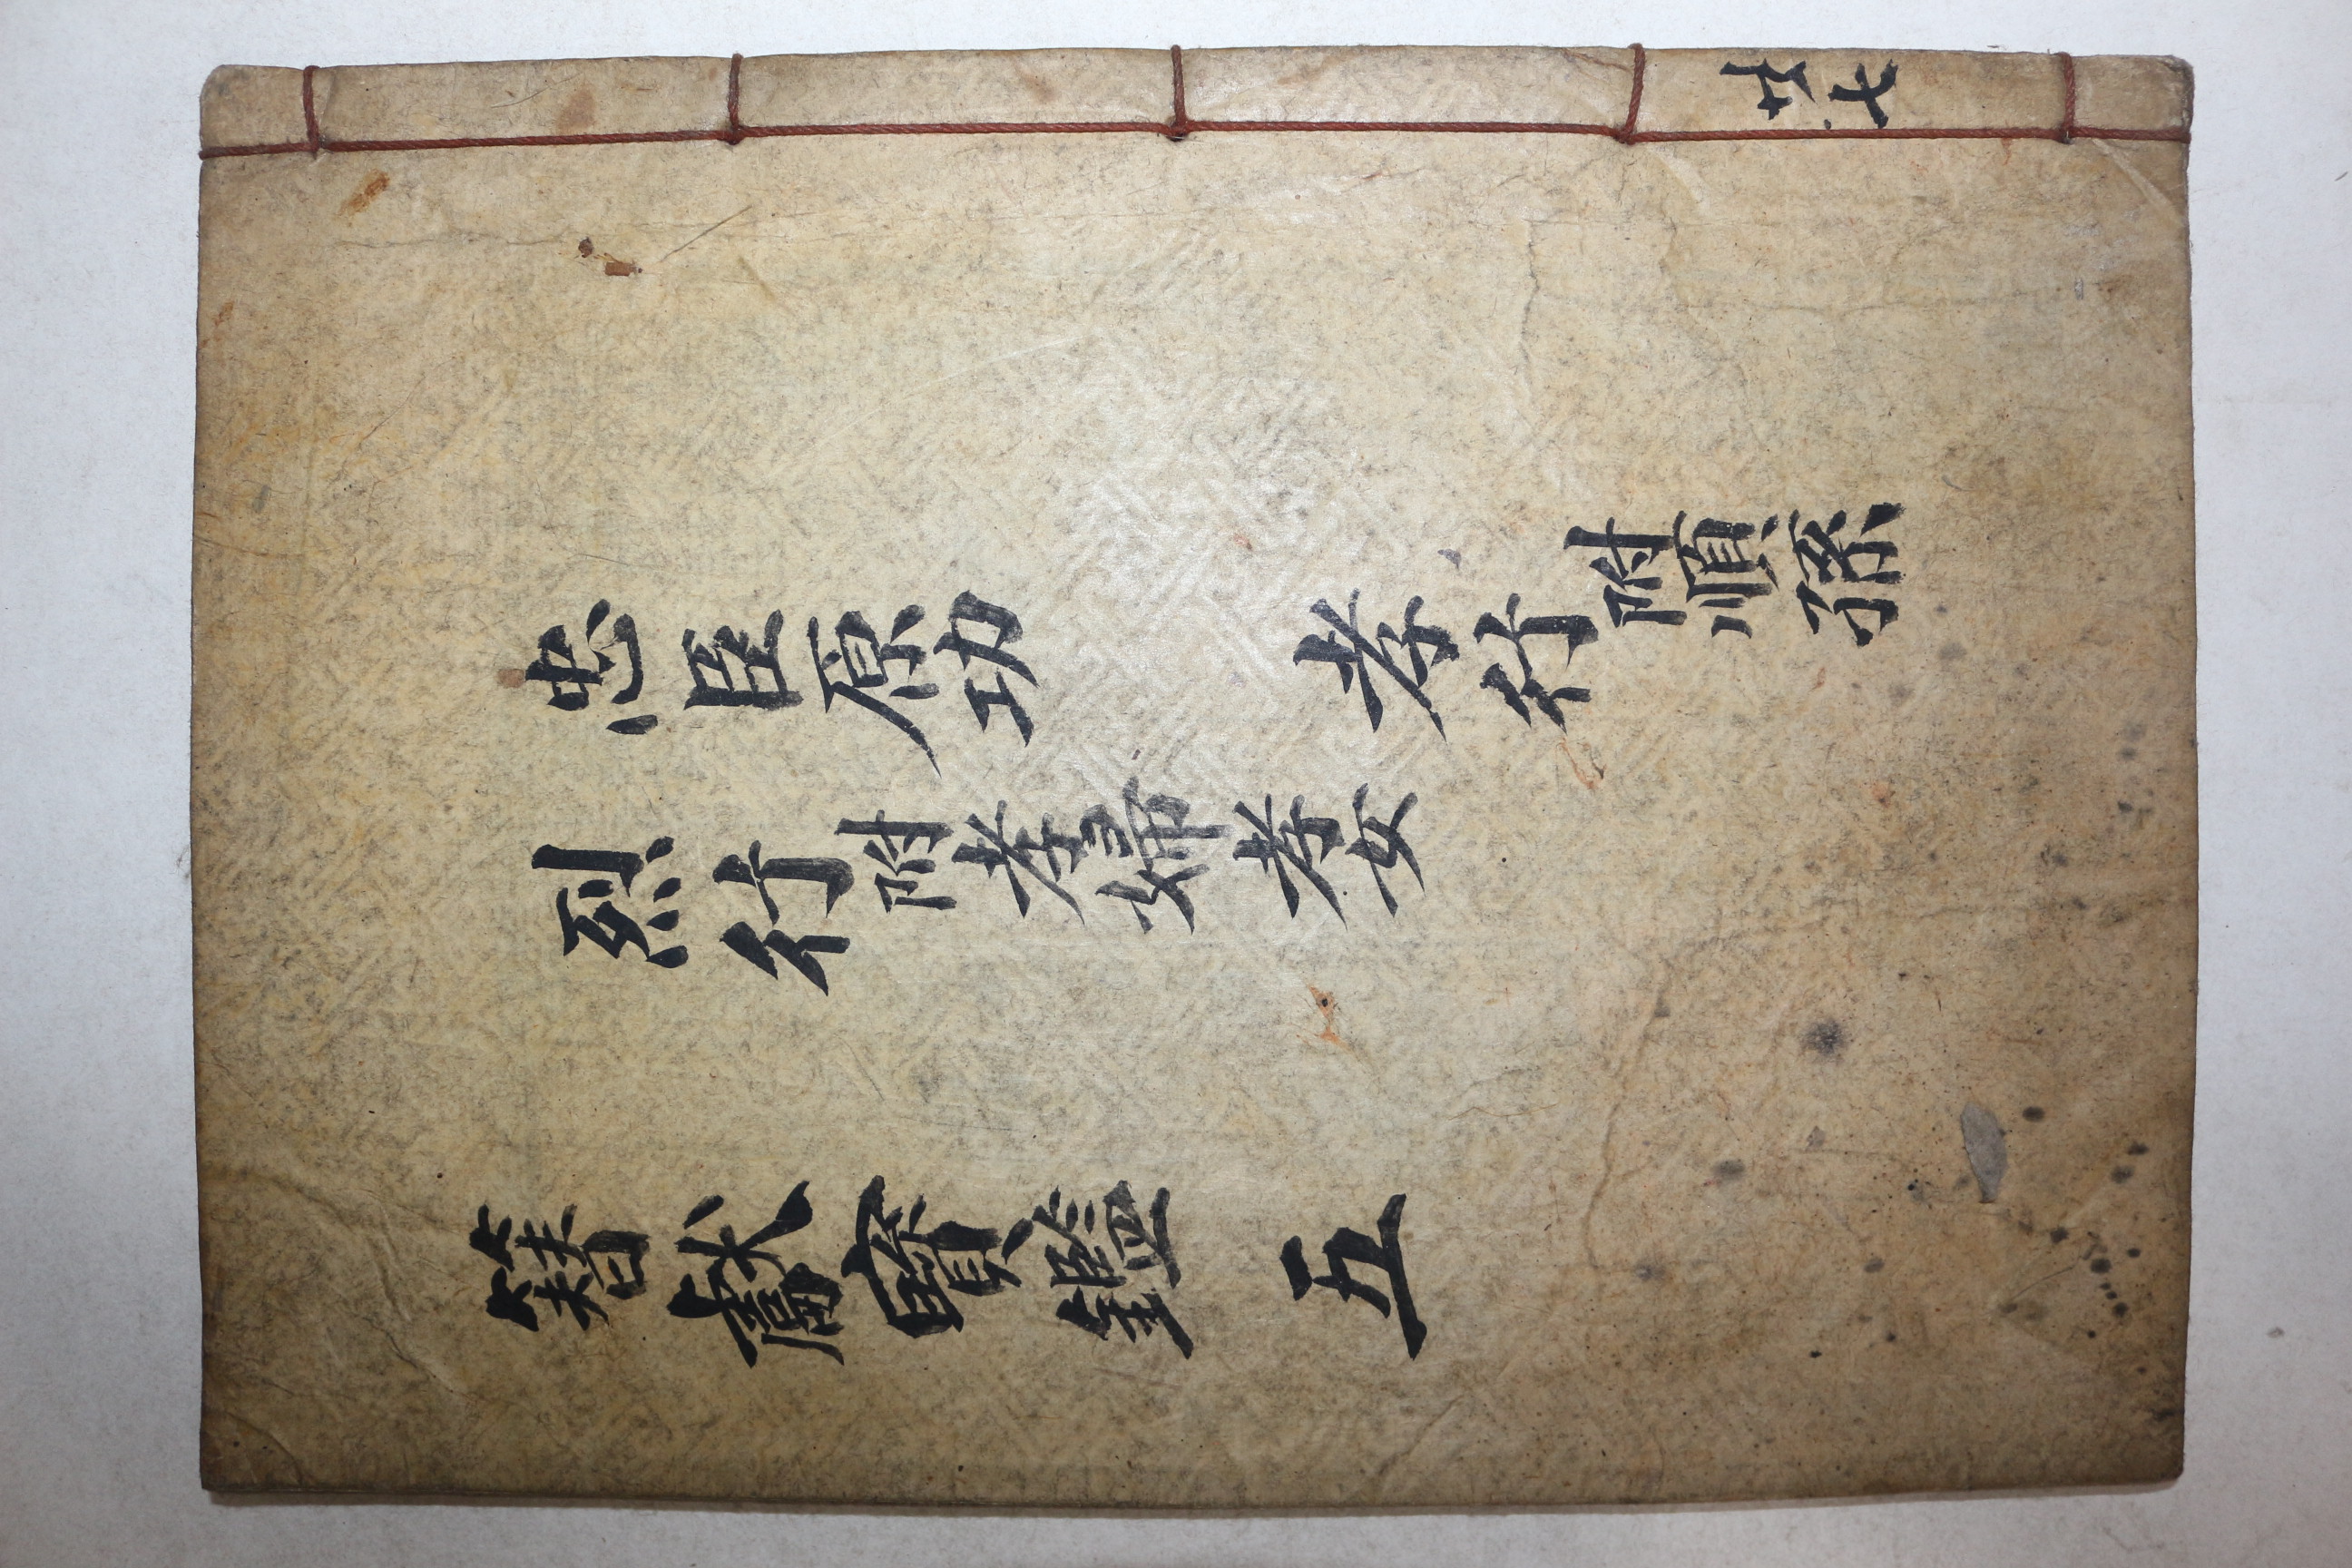 共七
忠臣原功 孝行附順孫
烈行附孝婦孝女
簪獻寶鑑 五